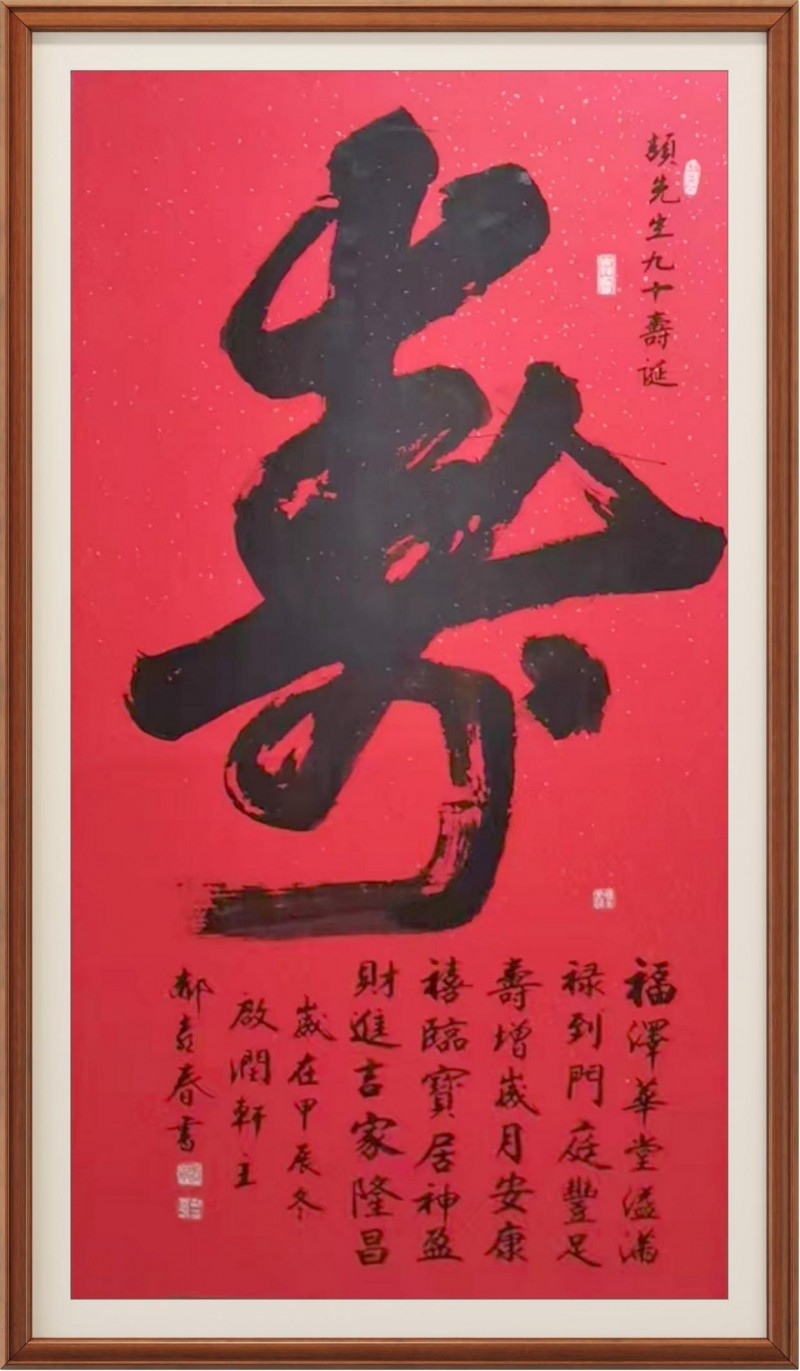 先生九十壽誕
壽
福澤華堂溢滿
禄到門庭豐足
壽增嵗月安康
禧臨寶居神盈
財進吉家隆昌
嵗在甲辰冬
啟潤軒主
郝春書